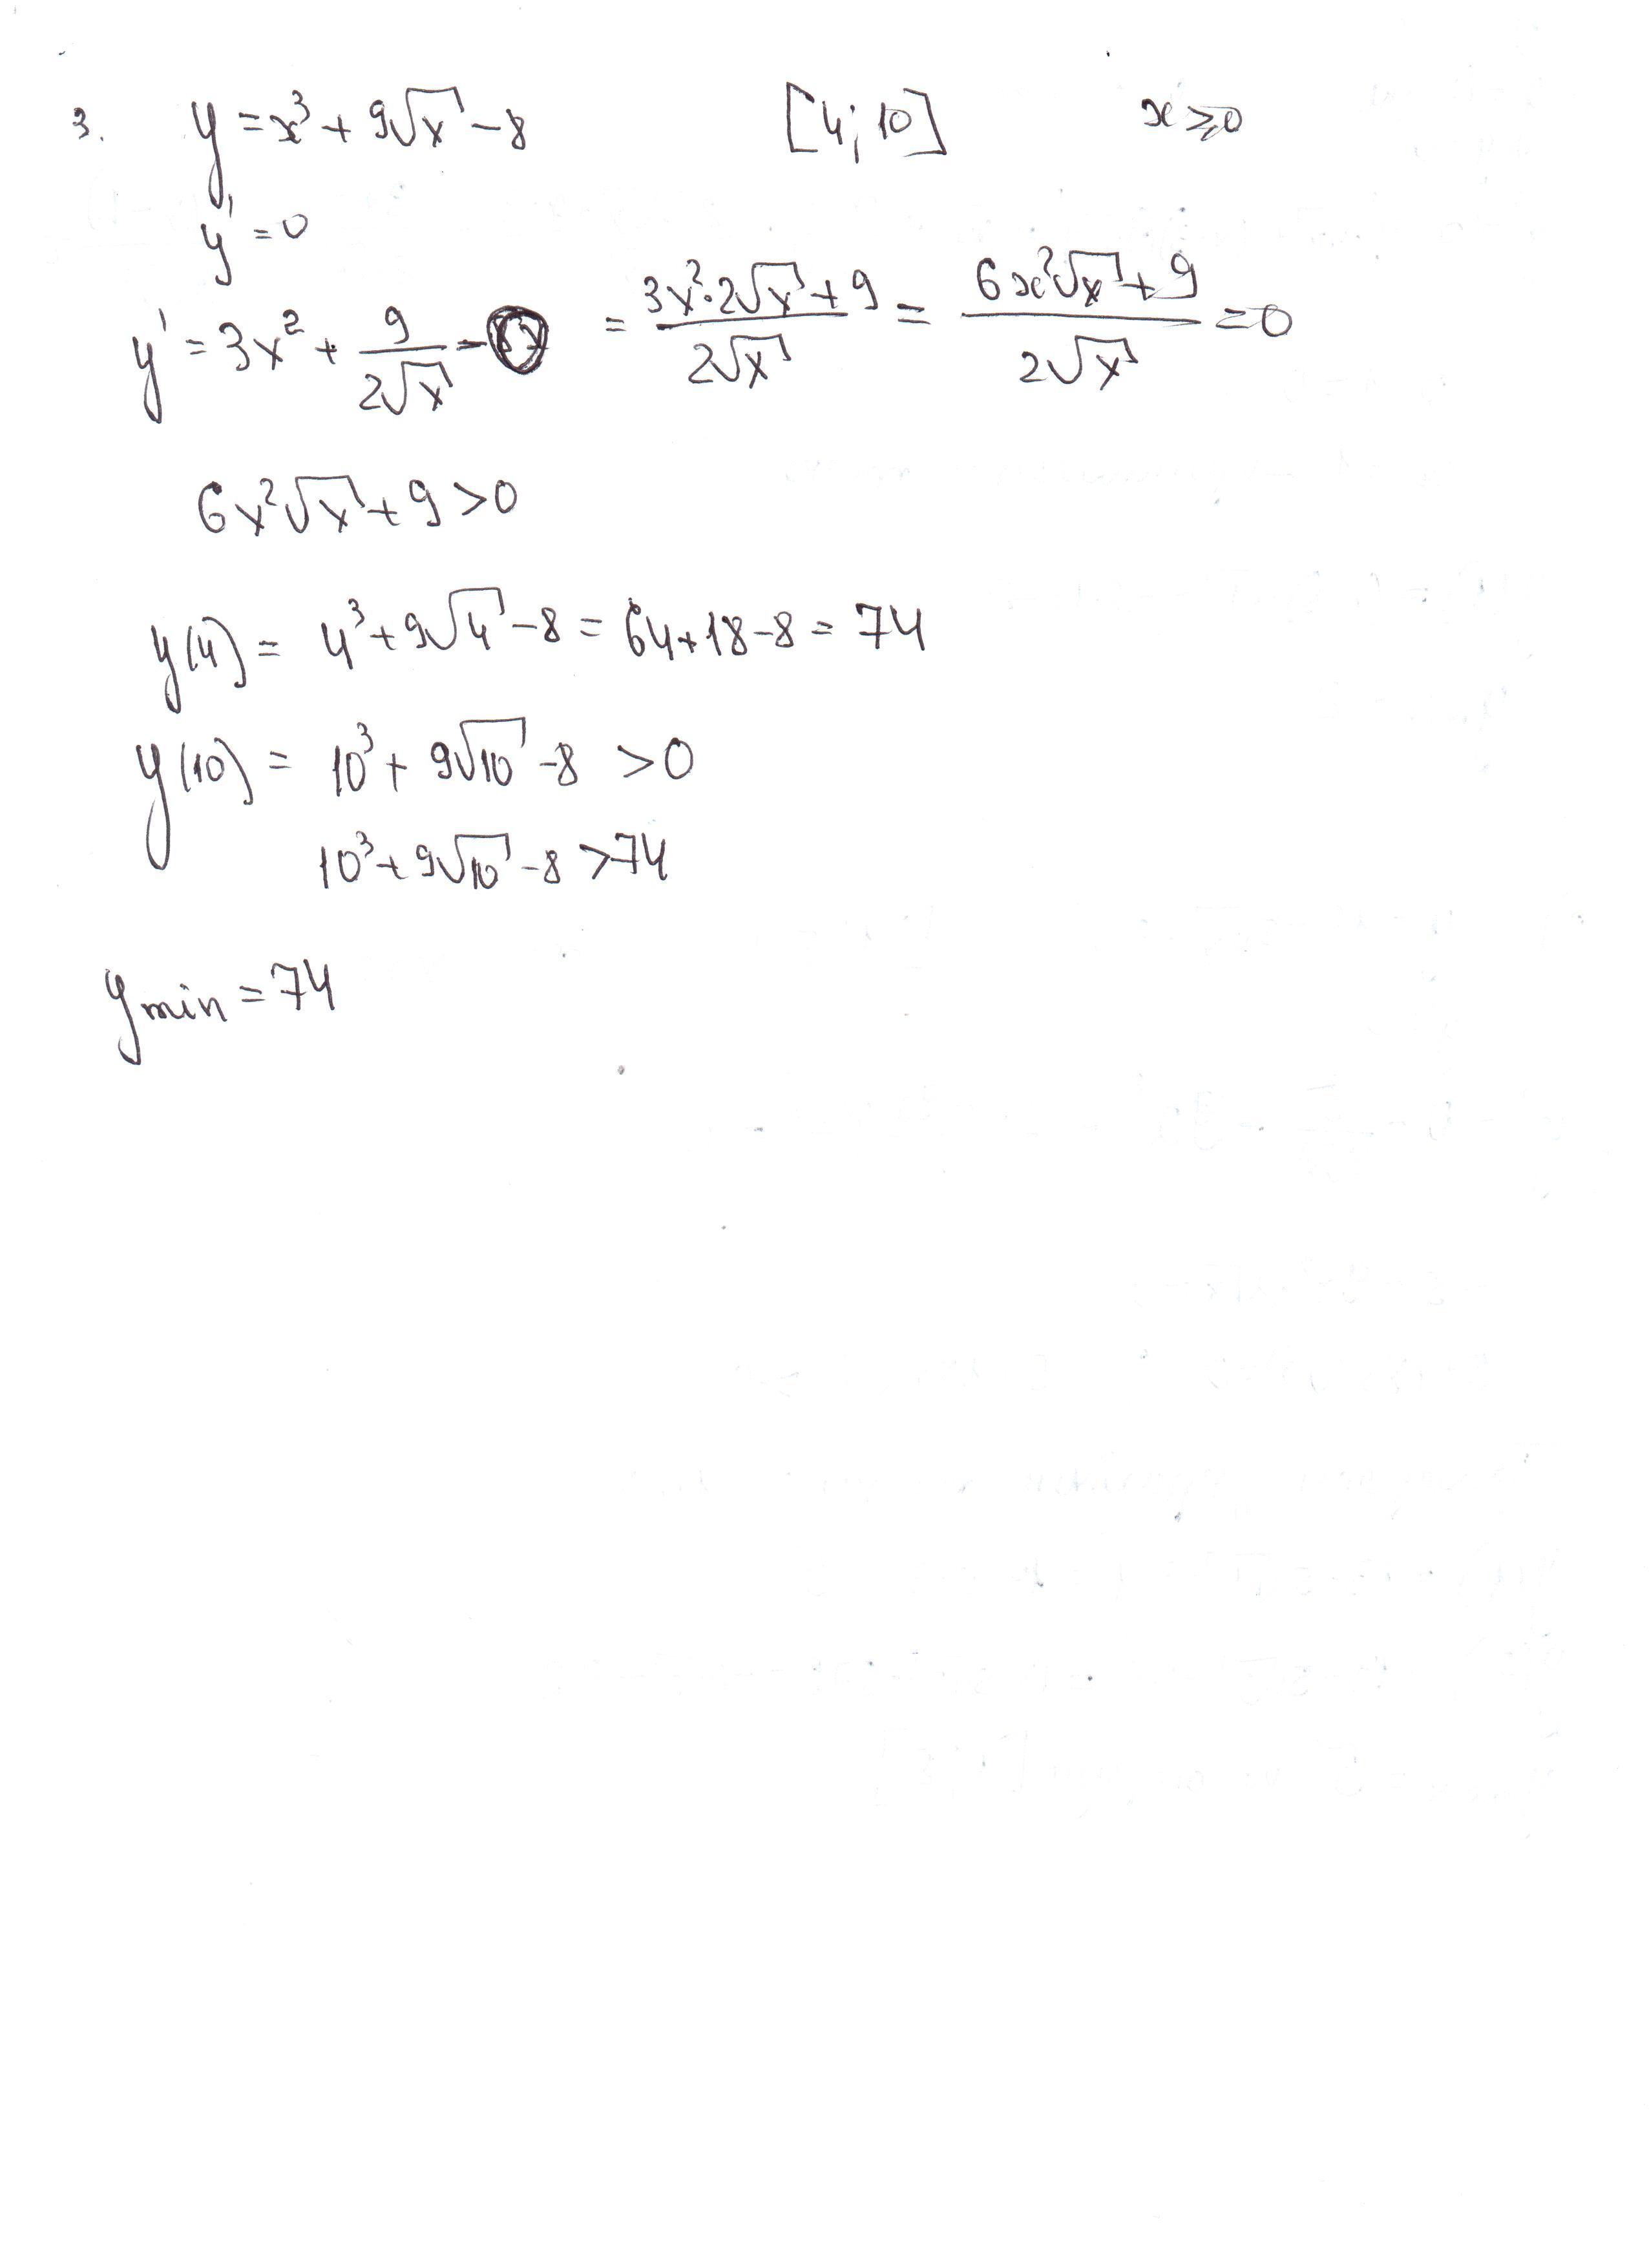 3. y = x³ + 9√x - 8 [4; 10] x ≥ 0
y' = 0
y' = 3x² + 9/(2√x) - = (3x²·2√x + 9)/(2√x) = (6x²√x + 9)/(2√x) = 0
6x²√x + 9 > 0
y(4) = 4³ + 9√4 - 8 = 64 + 18 - 8 = 74
y(10) = 10³ + 9√10 - 8 > 0
10³ + 9√10 - 8 > 74
y min = 74